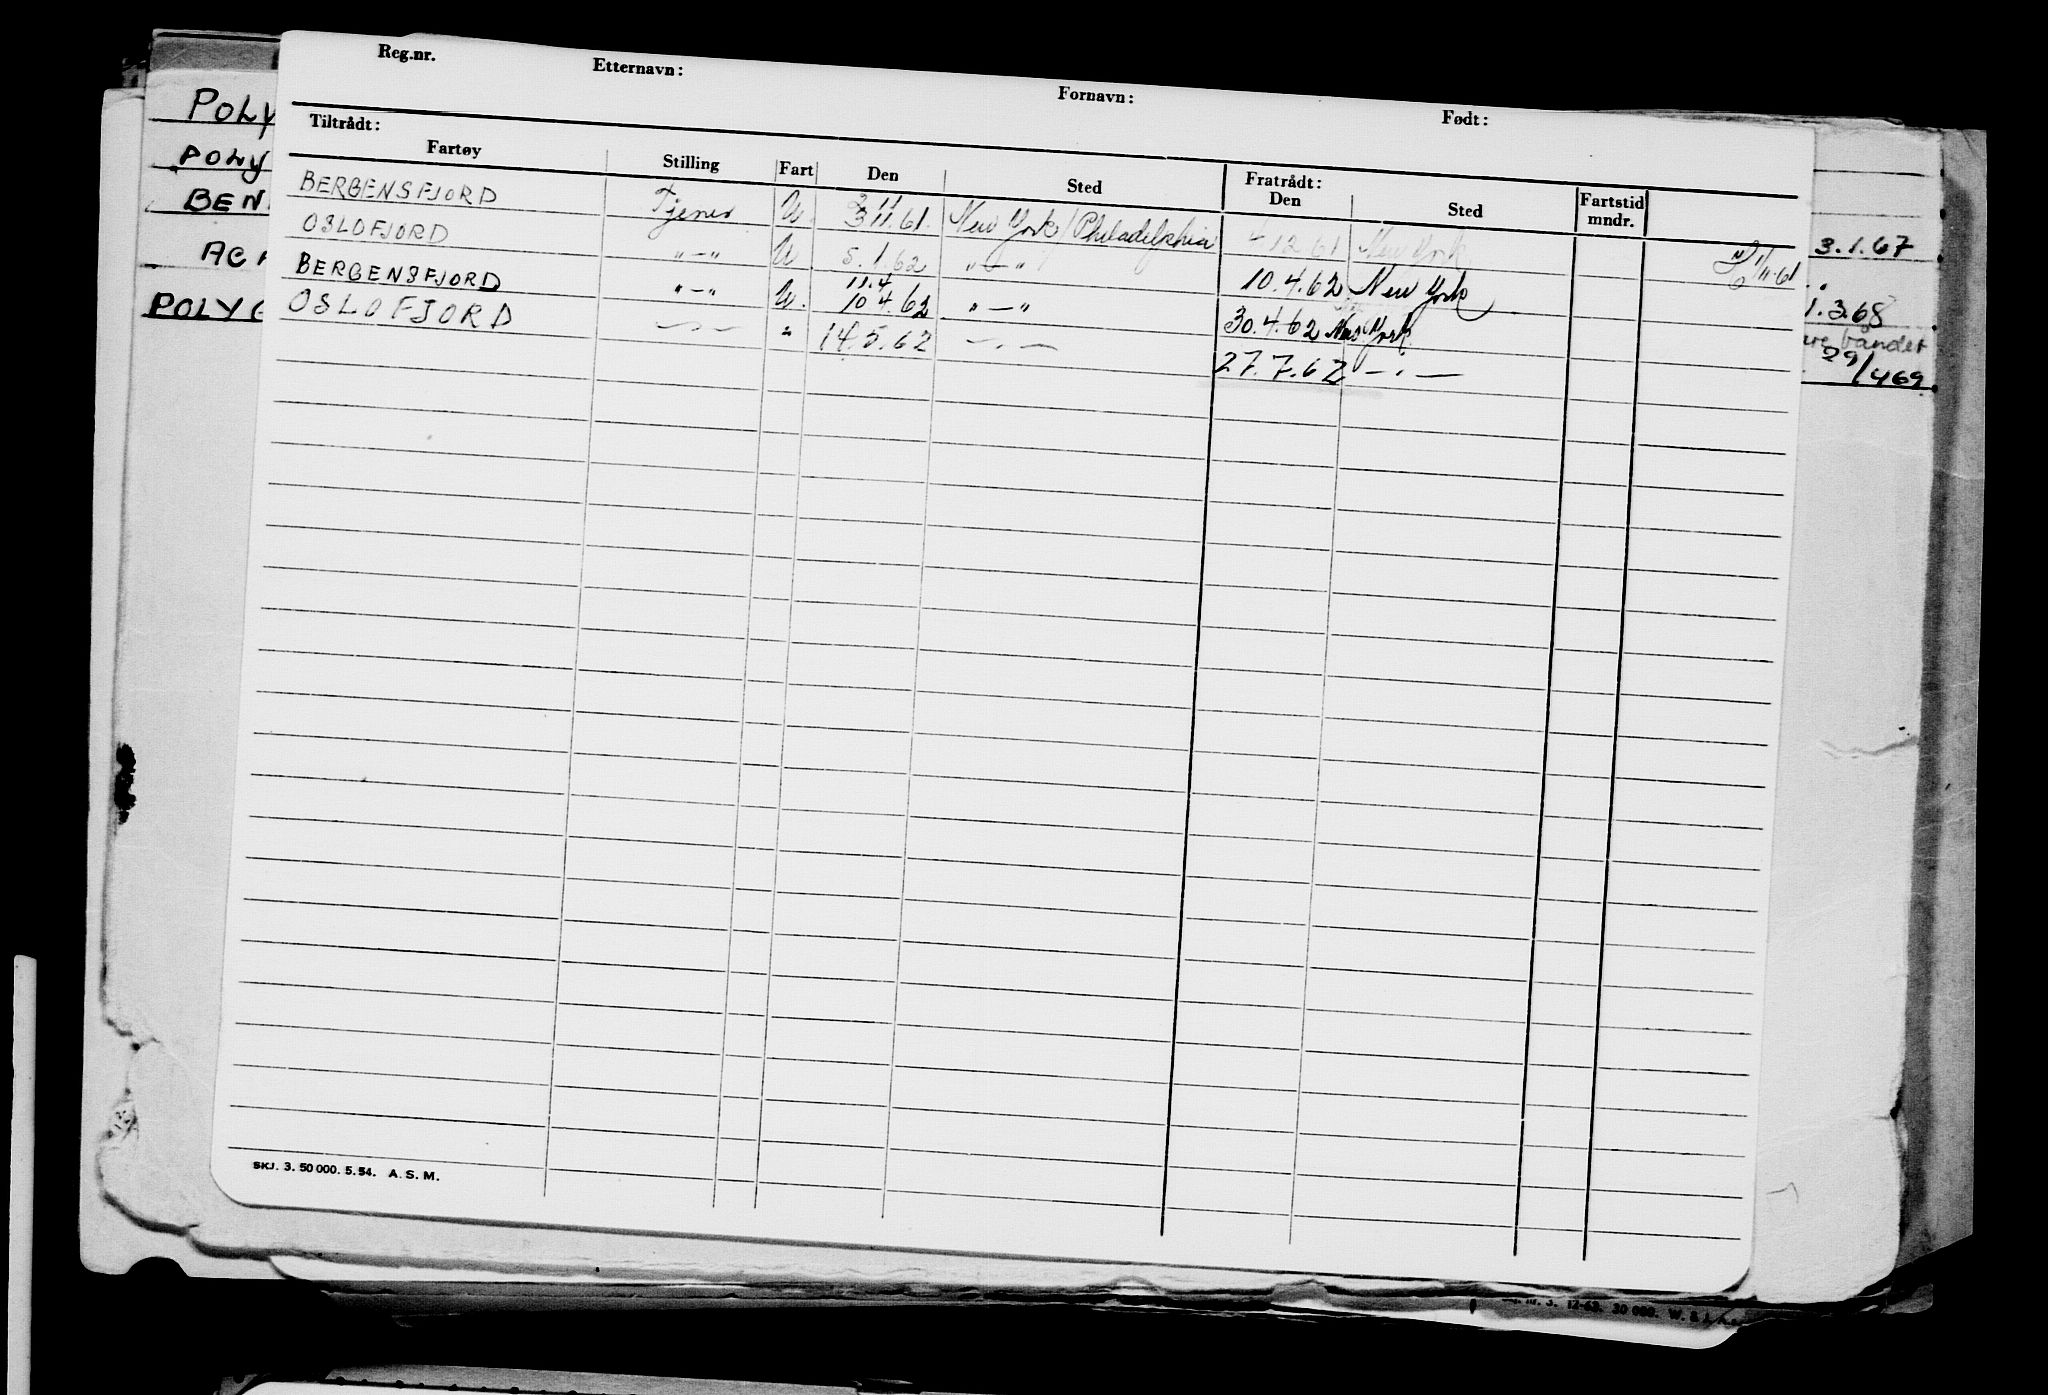 Reg.nr. Etternavn: Fornavn: Født:
Tiltrådt: Fratrådt:
Fartøy Stilling Fart Den Sted Den Sted Fartstid mndr.
BERGENSFJORD Tjener U. 3.11.61. New York/Philadelphia 4.12.61 New York 3/11-61
OSLOFJORD "-" U 5.1.62 "-" 10.4.62 New York
BERGENSFJORD "-" U. 11.4 10.4.62 "-" 30.4.62 New York
OSLOFJORD -"- " 14.5.62 -"- 27.7.62 -"-
SKJ. 3. 50 000. 5. 54. A. S. M.
POLY
POLY
BEN
POLYG
3.1.67
1.3.68
båndet
29/469
3. 12-63. 30 000. W. &